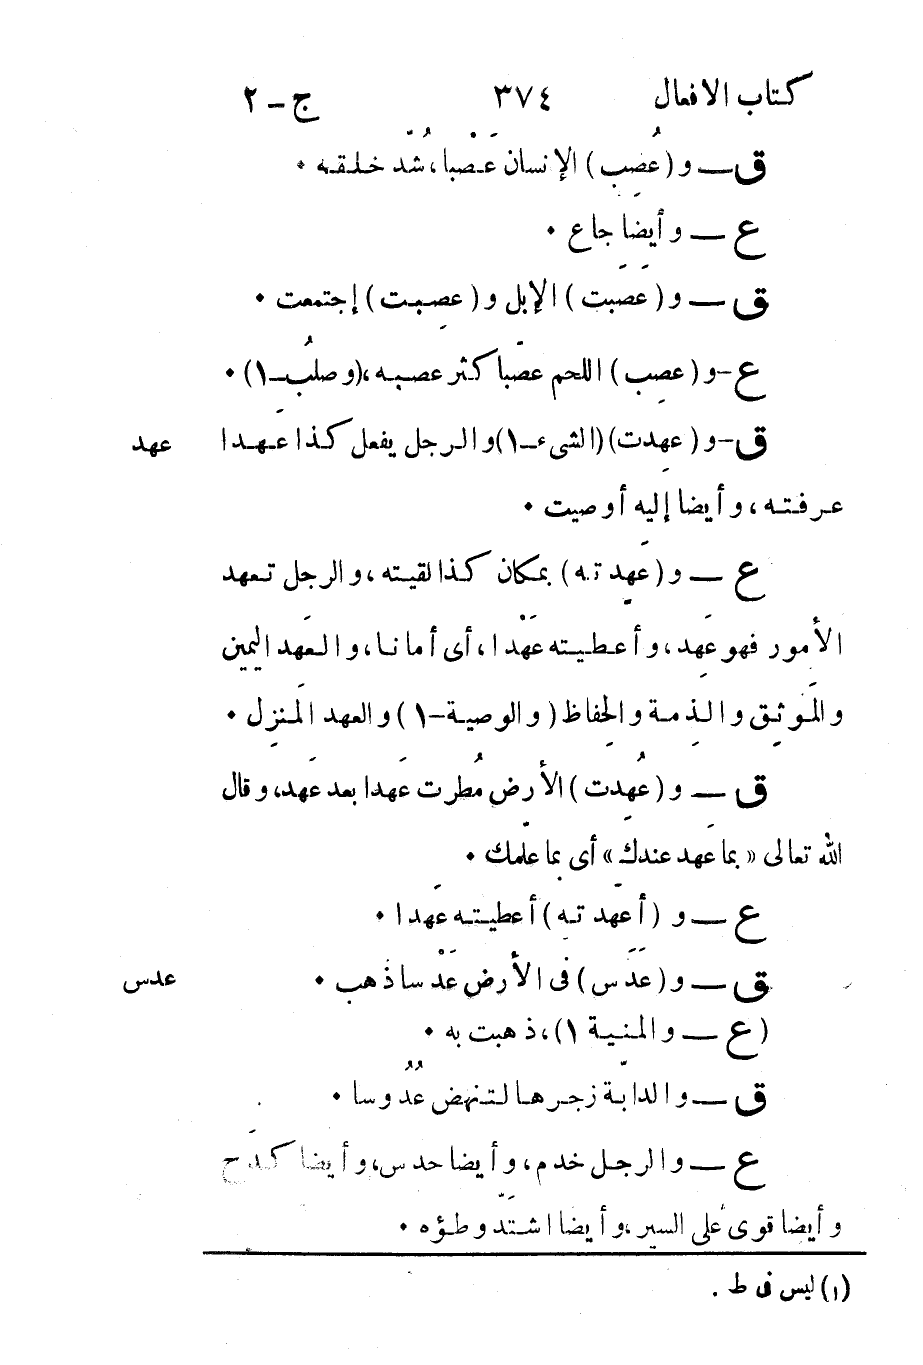 كتاب الافعال ٣٧٤ ج – ٢
ق — و (عُصِب) الإنسان عَصْبا، شُدّ خلقه ٠
ع — و أيضا جاع ٠
ق — و (عَصَبت) الإبل و (عصِبت) إجتمعت ٠
ع – و (عصِب) اللحم عصَبا كثر عصبه، (و صلُب – ١) ٠
ق – و (عهِدت) (الشىء – ١) و الرجل يفعل كذا عهدا عهد
عرفته، و أيضا إليه أوصيت ٠
ع — و (عهِد ته) بمكان كذا لقيته، و الرجل تعهد
الأمور فهو عَهِد، و أعطيته عَهْدا، أى أمانا، و العَهد اليمين
و المَوثِق و الذِمة و الحِفاظ (و الوصية – ١) و العهد المَنزِل ٠
ق — و (عُهِدت) الأرض مُطِرت عَهدا بعد عَهد، و قال
الله تعالى « بما عَهِد عندك » أى بما علمك ٠
ع — و (أعهد ته) أعطيته عَهدا ٠
ق — و (عَدَس) فى الأرض عَدْسا ذهب ٠ عدس
(ع — و المنية ١)، ذهبت به ٠
ق — و الدابّة زجرها لتنهض عُدُوسا ٠
ع — و الرجل خدم، و أيضا حدس، و أيضا كدَح
و أيضا قوى على السير، و أيضا اشتَدّ وطؤه ٠
(١) ليس فى ط .